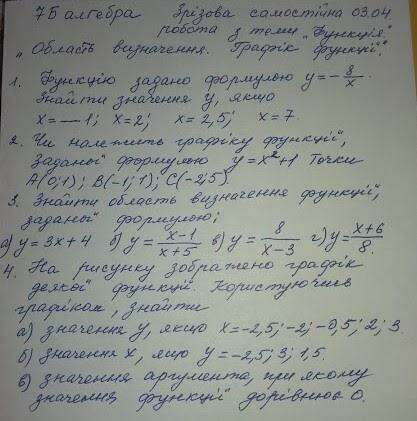 7Б алгебра Зрізова самостійна 03.04
робота з теми „Функція"
„Область визначення. Графік функції".
1. Функцію задано формулою y = - 8/x.
Знайти значення y, якщо
x = -1; x = 2; x = 2,5; x = 7.
2. Чи належить графіку функції,
заданої формулою y = x² + 1 точки
A(0;1); B(-1;1); C(-2;5).
3. Знайти область визначення функції,
заданої формулою;
а) y = 3x + 4 б) y = x-1/x+5 в) y = 8/x-3 г) y = x+6/8.
4. На рисунку зображено графік
деякої функції. Користуючись
графіком, знайти
а) значення y, якщо x = -2,5; -2; -0,5; 2; 3.
б) значення x, якщо y = -2,5; 3; 1,5.
в) значення аргумента, при якому
значення функції дорівнює 0.